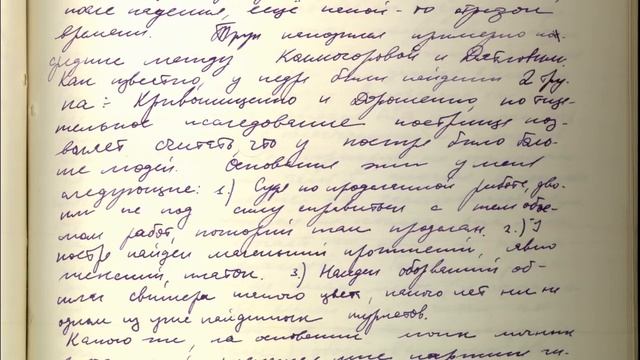 после падения, ещё некой-то отрезок
времени. Труп находился примерно по-
средине между Колмогоровой и Дятловым.
Как известно, у кедра были найдены 2 тру-
па: Кривонищенко и Дорошенко, но тща-
тельное исследование кострища поз-
воляет считать, что у костра было боль-
ше людей. Основания этим у меня
следующие: 1.) Судя по проделанной работе, дво-
им не под силу справиться с тем объё-
мом работ, который там проделан. 2.) У
костра найден маленький прожжённый, явно
женский, платок. 3.) Найден оборванный об-
шлаг свитера темного цвета, какого нет ни на
одном из уже найденных туристов.
Каково же, на основании моих личных